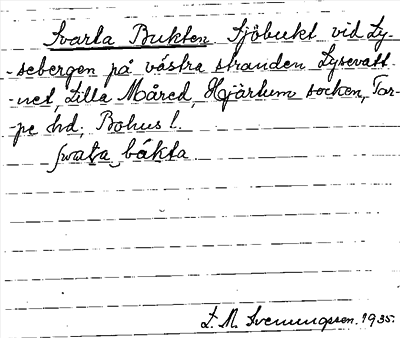 Svarta Bukten. Sjöbukt vid Ly-
-sebergen på västra stranden Lysevatt-
-net, Lilla Måred, Hjärtum socken, Tor-
-pe hd, Bohus l.
svaṭa bäkta
L. M. Svenungsson. 1935.